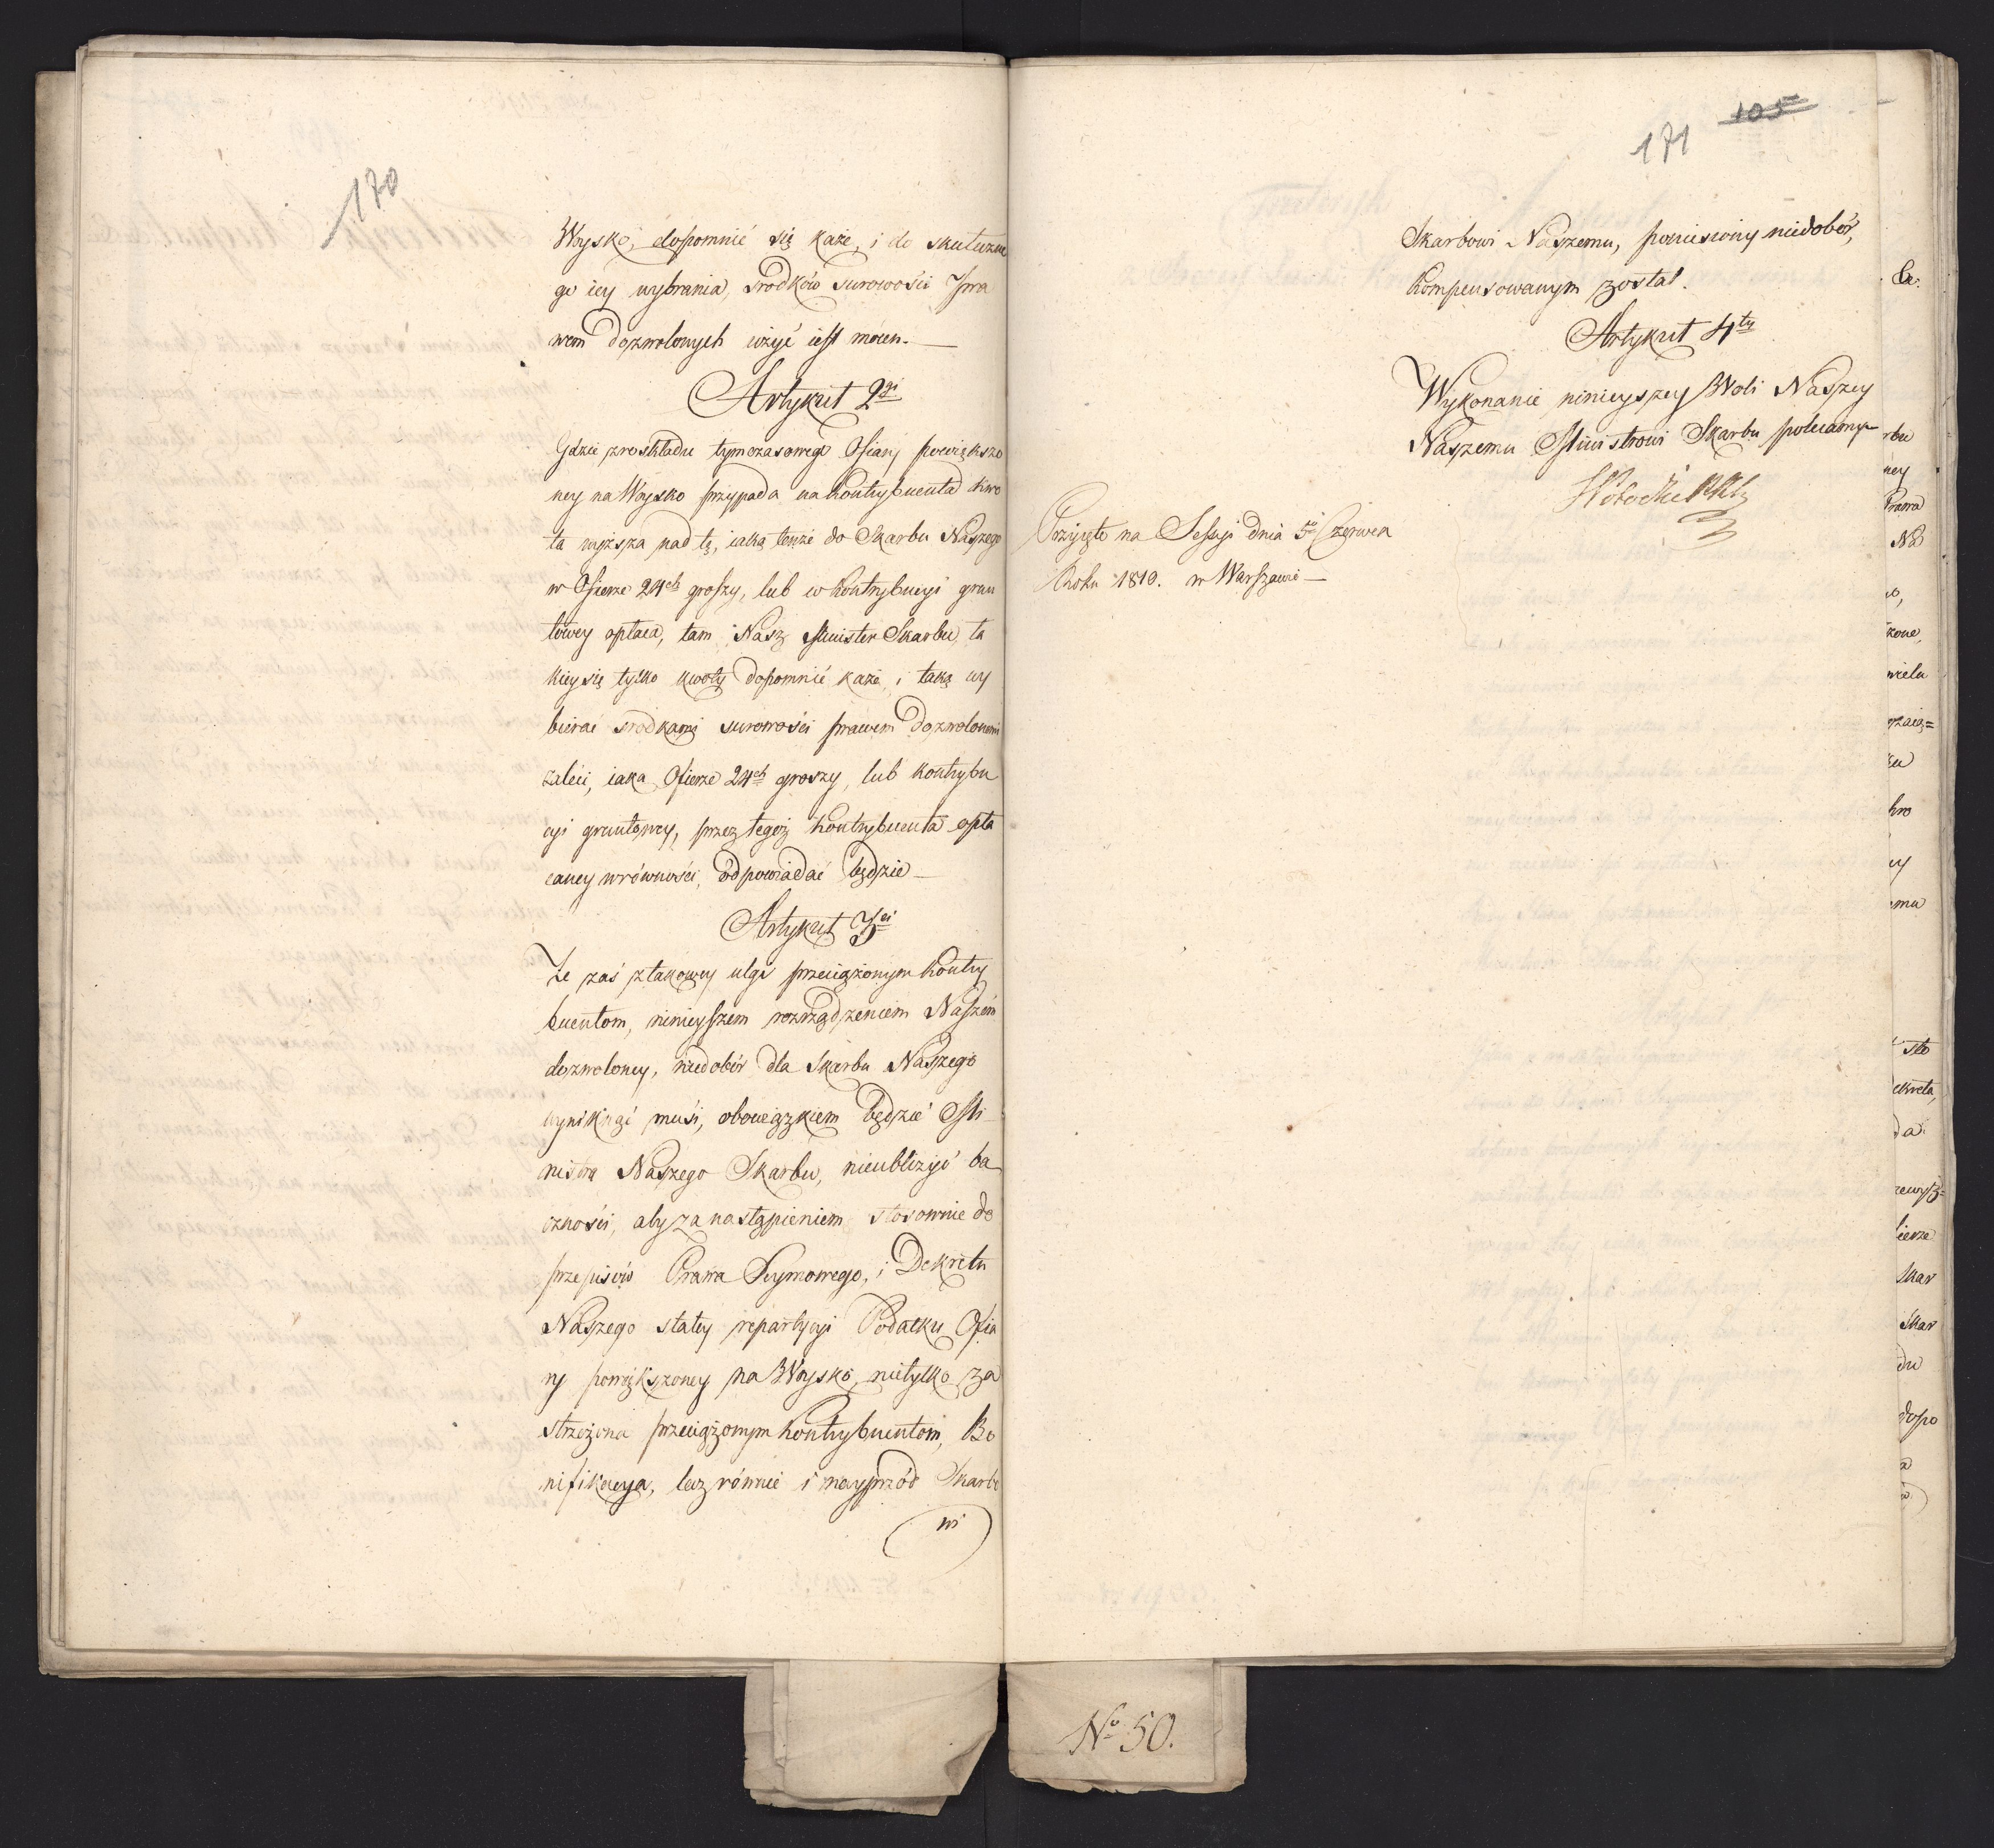 170
Woysko, dopomnić się każe, i do skuteczne
go iey wybrania, srodków surowości Pra
wem dozwolonych użyć iest mocen. —
Artykuł 2gi
Gdzie z roskładu tymczasowego Ofiary powiększo
ney na Woysko przypada na Kontrybuenta kwo
ta wyższa nad tę, iaką tenże do Skarbu Naszego
w Ofierze 24ch groszy, lub w Kontrybucyi grun
towey opłaca, tam Nasz Minister Skarbu, ta
kiey się tylko kwoty dopomnić każe, i taką wy
bierać srodkami surowości prawem dozwolonemi
zaleci, iaka Ofierze 24ch groszy, lub Kontrybu
cyi gruntowey, przez tegoż Kontrybuenta opła
caney w równości, odpowiadać będzie —
Artykuł 3ci
Że zaś z takowey ulgi przeciążonym Kontry
buentom, ninieyszem rozrządzeniem Naszem
dozwoloney, niedobór dla Skarbu Naszego
wyniknąć musi, obowiązkiem będzie Mi
nistra Naszego Skarbu, nieubliżyć ba
czności, aby za nastąpieniem stosownie do
przepisów Prawa Seymowego, i Dekretu
Naszego stałey repartycyi Podatku Ofia
ry powiększoney na Woysko, nietylko za
strzeżona przeciążonym Kontrybuentom, Bo
nifikacya, lecz równie i nayprzód Skarbo
wi
105
171
Skarbowi Naszemu, poniesiony niedobór,
kompensowanym został.
Artykuł 4ty
Wykonanie ninieyszey Woli Naszey
Naszemu Ministrowi Skarbu polecamy
Przyięto na Sessyi dnia 5o Czerwca
Roku 1810. w Warszawie —
rbu
ney
Prawa
Na
żone,
wielu
emu
sto
ekreta,
da
ierze
Skar
Skar
du
dopo
No 50.